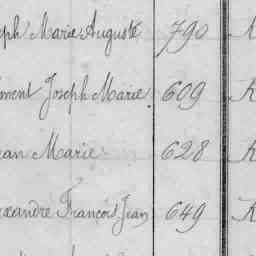 eph Marie Auguste 790
ment Joseph Marie 609
ean Marie 628
exandre François Jean 649